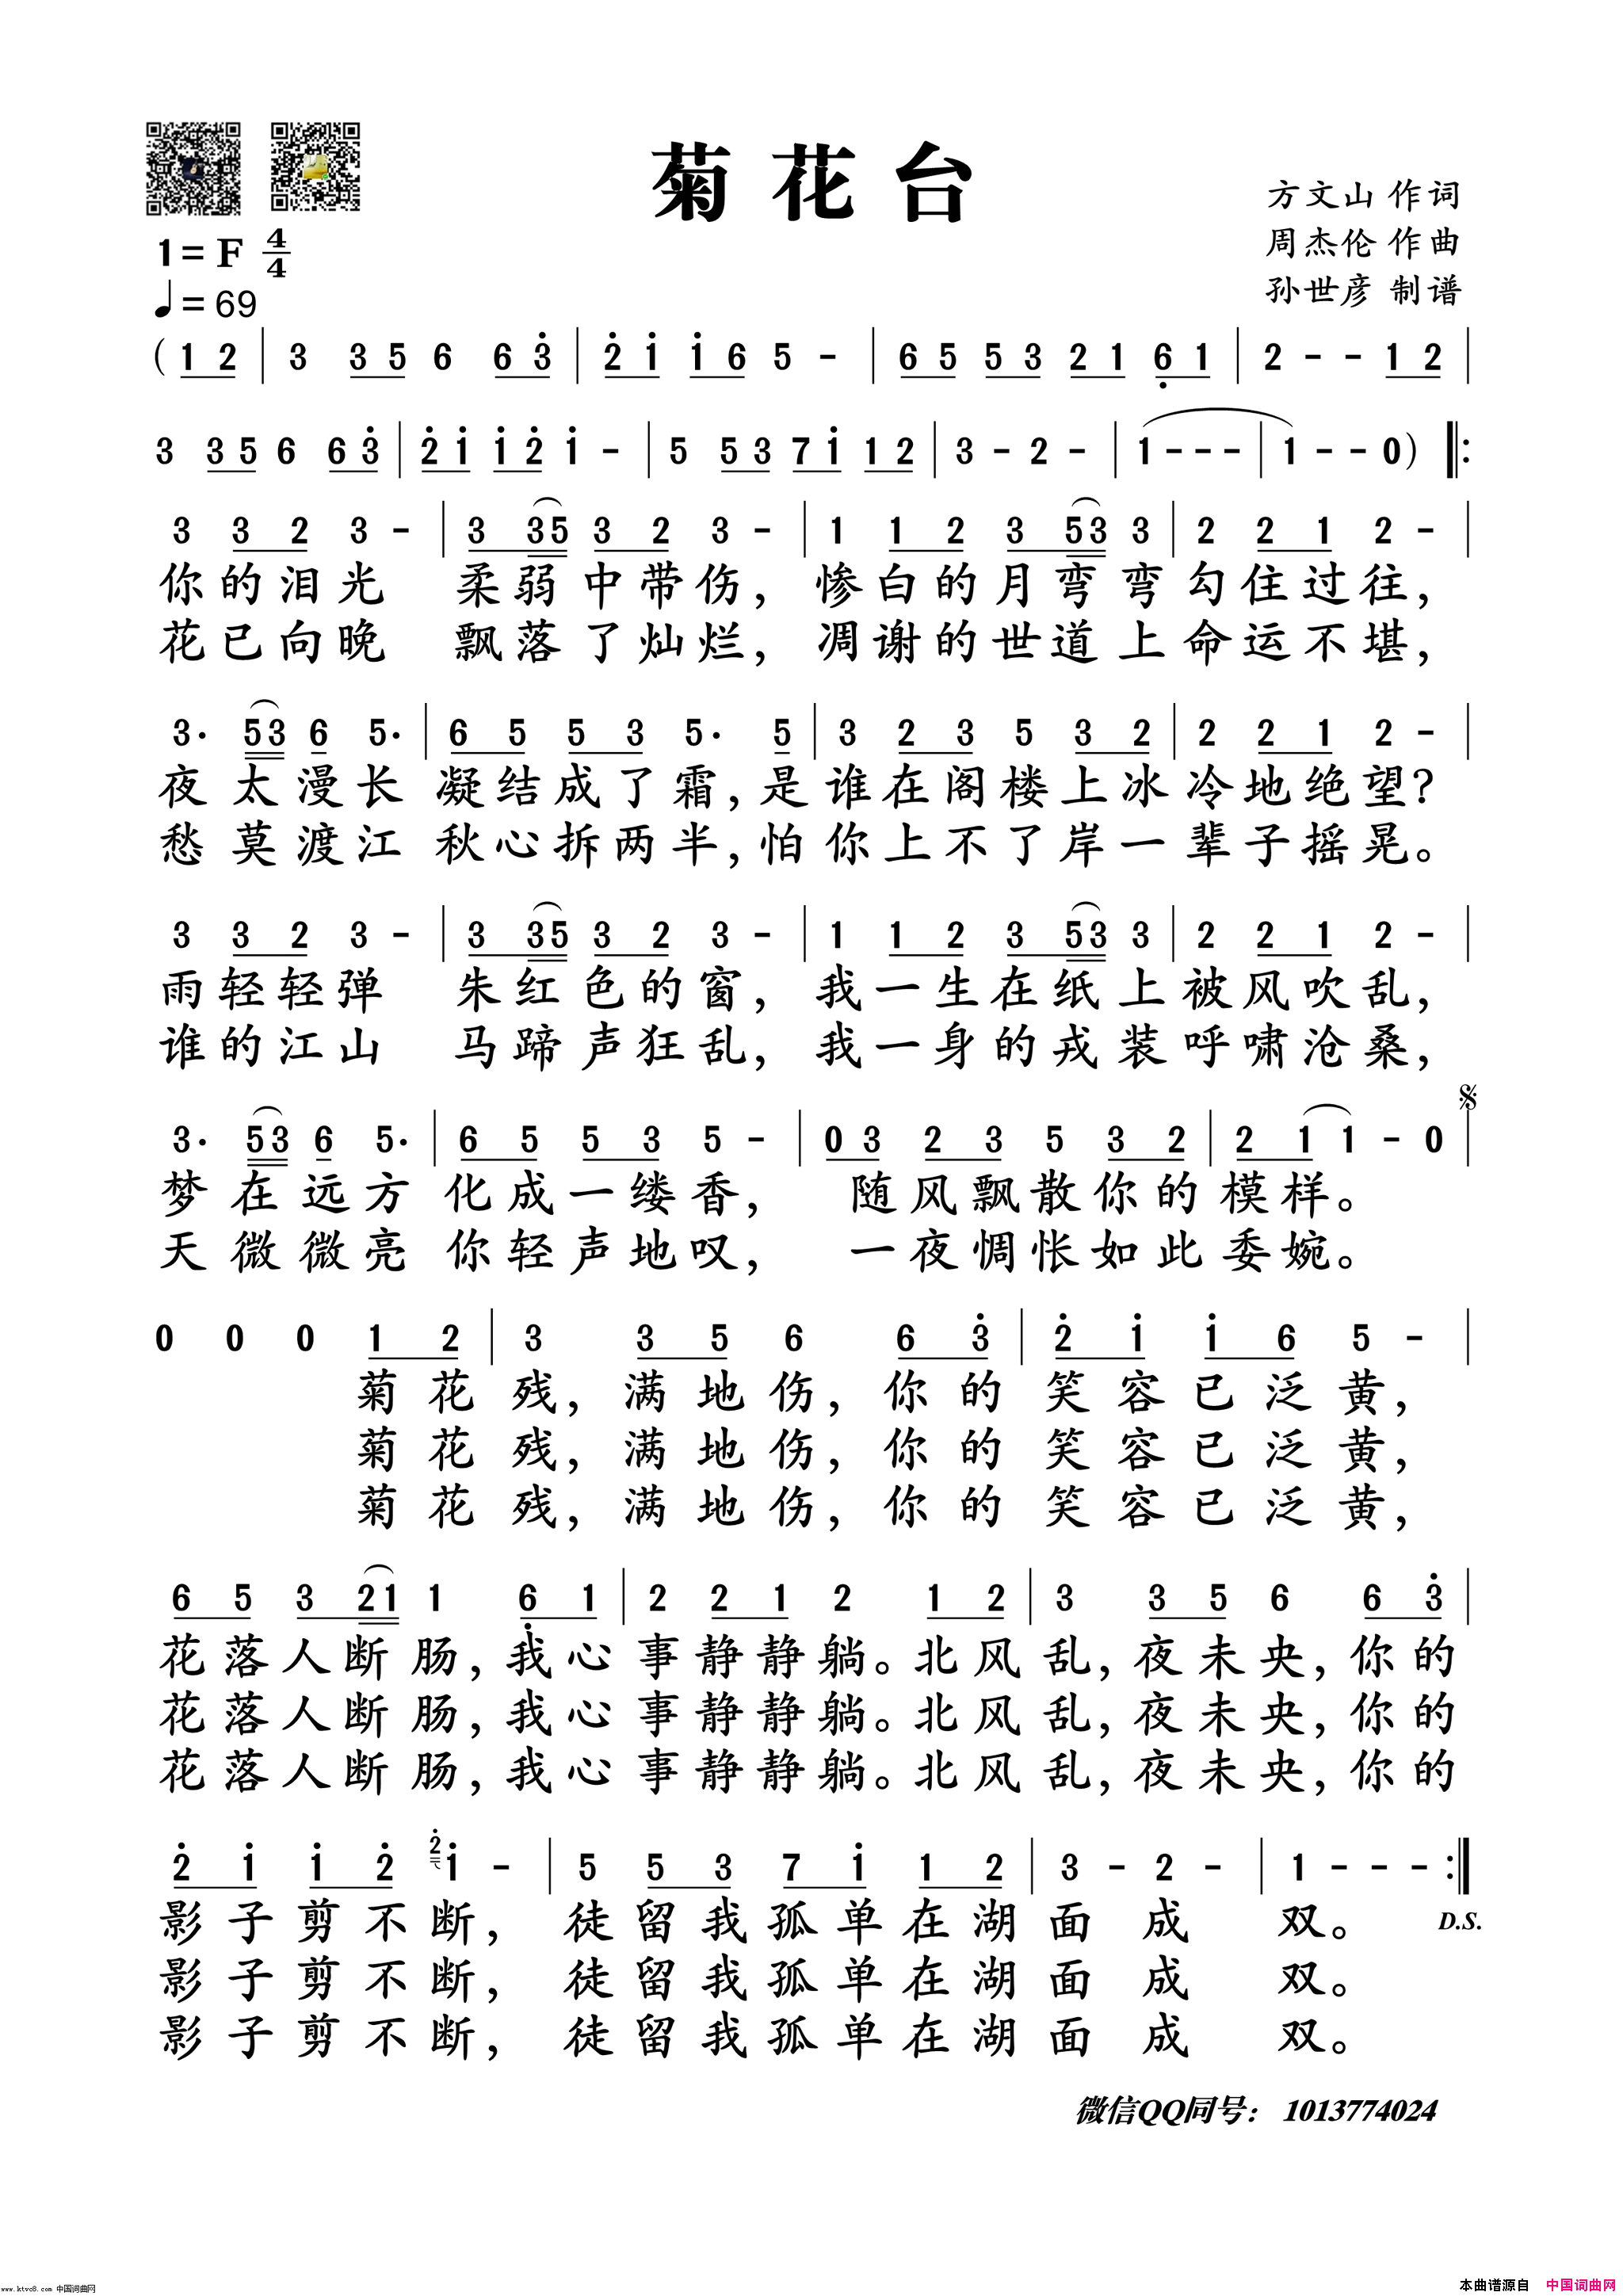 菊花台
方文山 作词
周杰伦 作曲
孙世彦 制谱
1=F 4/4
♩=69
(1 2 | 3 3 5 6 6 3̇ | 2̇ 1̇ 1̇ 6 5 - | 6 5 5 3 2 1 6̣ 1 | 2 - - 1 2 |
3 3 5 6 6 3̇ | 2̇ 1̇ 1̇ 2̇ 1̇ - | 5 5 3 7 1̇ 1 2 | 3 - 2 - | 1 - - - | 1 - - 0) ‖:
3 3 2 3 - | 3 3 5 3 2 3 - | 1 1 2 3 5 3 3 | 2 2 1 2 - |
你的泪光 柔弱中带伤，惨白的月弯弯勾住过往，
花已向晚 飘落了灿烂，凋谢的世道上命运不堪，
3· 5 3 6 5· | 6 5 5 3 5· 5 | 3 2 3 5 3 2 | 2 2 1 2 - |
夜太漫长 凝结成了霜，是谁在阁楼上冰冷地绝望？
愁莫渡江 秋心拆两半，怕你上不了岸一辈子摇晃。
3 3 2 3 - | 3 3 5 3 2 3 - | 1 1 2 3 5 3 3 | 2 2 1 2 - |
雨轻轻弹 朱红色的窗，我一生在纸上被风吹乱，
谁的江山 马蹄声狂乱，我一身的戎装呼啸沧桑，
3· 5 3 6 5· | 6 5 5 3 5 - | 0 3 2 3 5 3 2 | 2 1 1 - 0 |
梦在远方 化成一缕香， 随风飘散你的模样。
天微微亮 你轻声地叹， 一夜惆怅如此委婉。
0 0 0 1 2 | 3 3 5 6 6 3̇ | 2̇ 1̇ 1̇ 6 5 - |
菊花残，满地伤，你的笑容已泛黄，
菊花残，满地伤，你的笑容已泛黄，
菊花残，满地伤，你的笑容已泛黄，
6 5 3 2 1 1 6̣ 1 | 2 2 1 2 1 2 | 3 3 5 6 6 3̇ |
花落人断肠，我心事静静躺。北风乱，夜未央，你的
花落人断肠，我心事静静躺。北风乱，夜未央，你的
花落人断肠，我心事静静躺。北风乱，夜未央，你的
2̇ 1̇ 1̇ 2̇ 2̇ 1̇ - | 5 5 3 7 1̇ 1 2 | 3 - 2 - | 1 - - - :‖
影子剪不断， 徒留我孤单在湖面成双。 D.S.
影子剪不断， 徒留我孤单在湖面成双。
影子剪不断， 徒留我孤单在湖面成双。
微信QQ同号： 1013774024
www.ktvc8.com 中国词曲网
本曲谱源自 中国词曲网